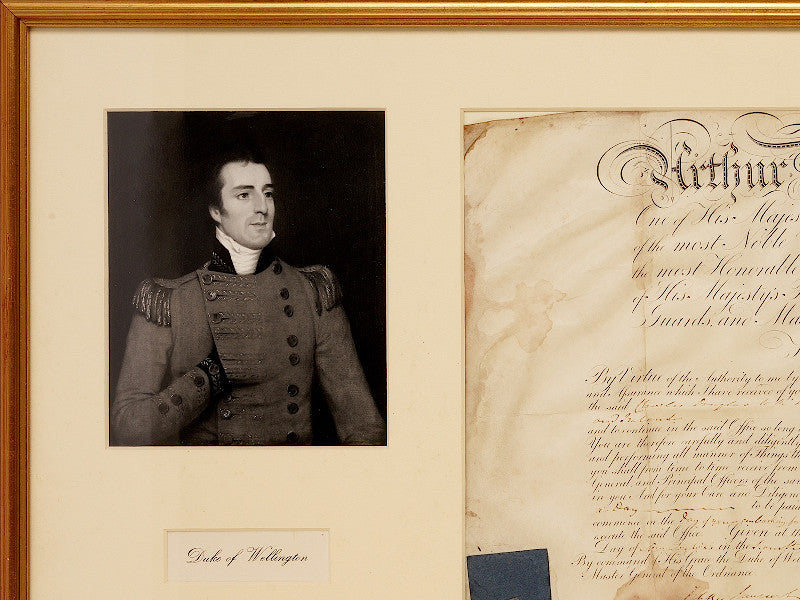 Arthur
One of His Majes
of the most Noble
the most Honorable
of His Majesty's
Guards, and Ma
By Virtue of the Authority to me by
and Assurance which I have received of yo
the said
and to continue in the said Office so long
You are therefore carefully and diligently
and performing all manner of Things th
you shall from time to time receive from
General, and Principal Officers of the sa
in you And for your Care and Diligenc
a Day to be paid
commence on the Day of
execute the said Office Given at th
Day of in the
By command of His Grace the Duke of Wel
Master General of the Ordnance.
Duke of Wellington